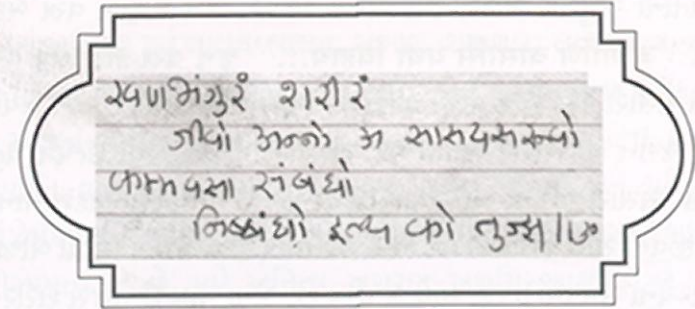 खणभंगुरं शरीरं
जीवो अन्नो अ सासयसरुवो
कम्मवसा संबंधो
निब्बंधो इत्थ को तुज्झ।७०